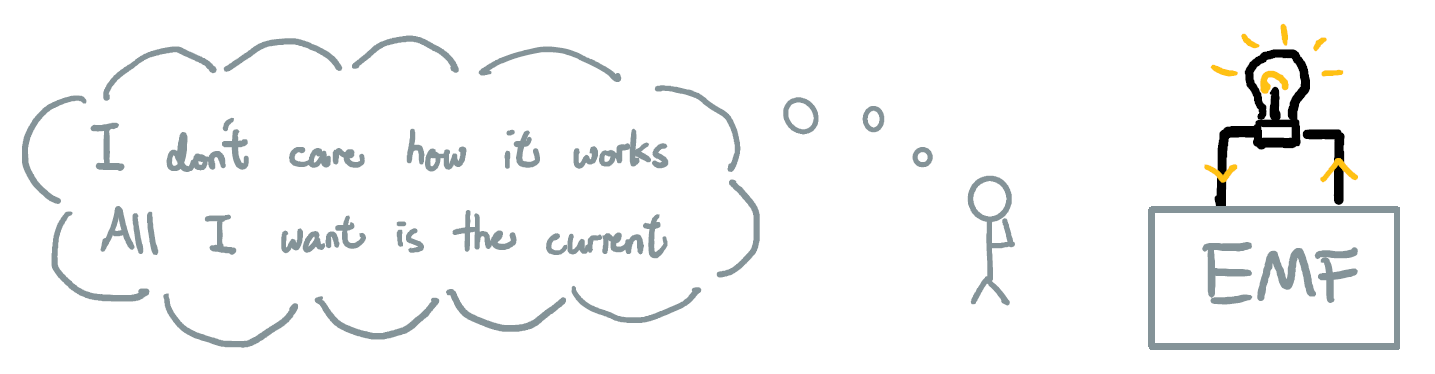 I don't care how it works
All I want is the current
EMF